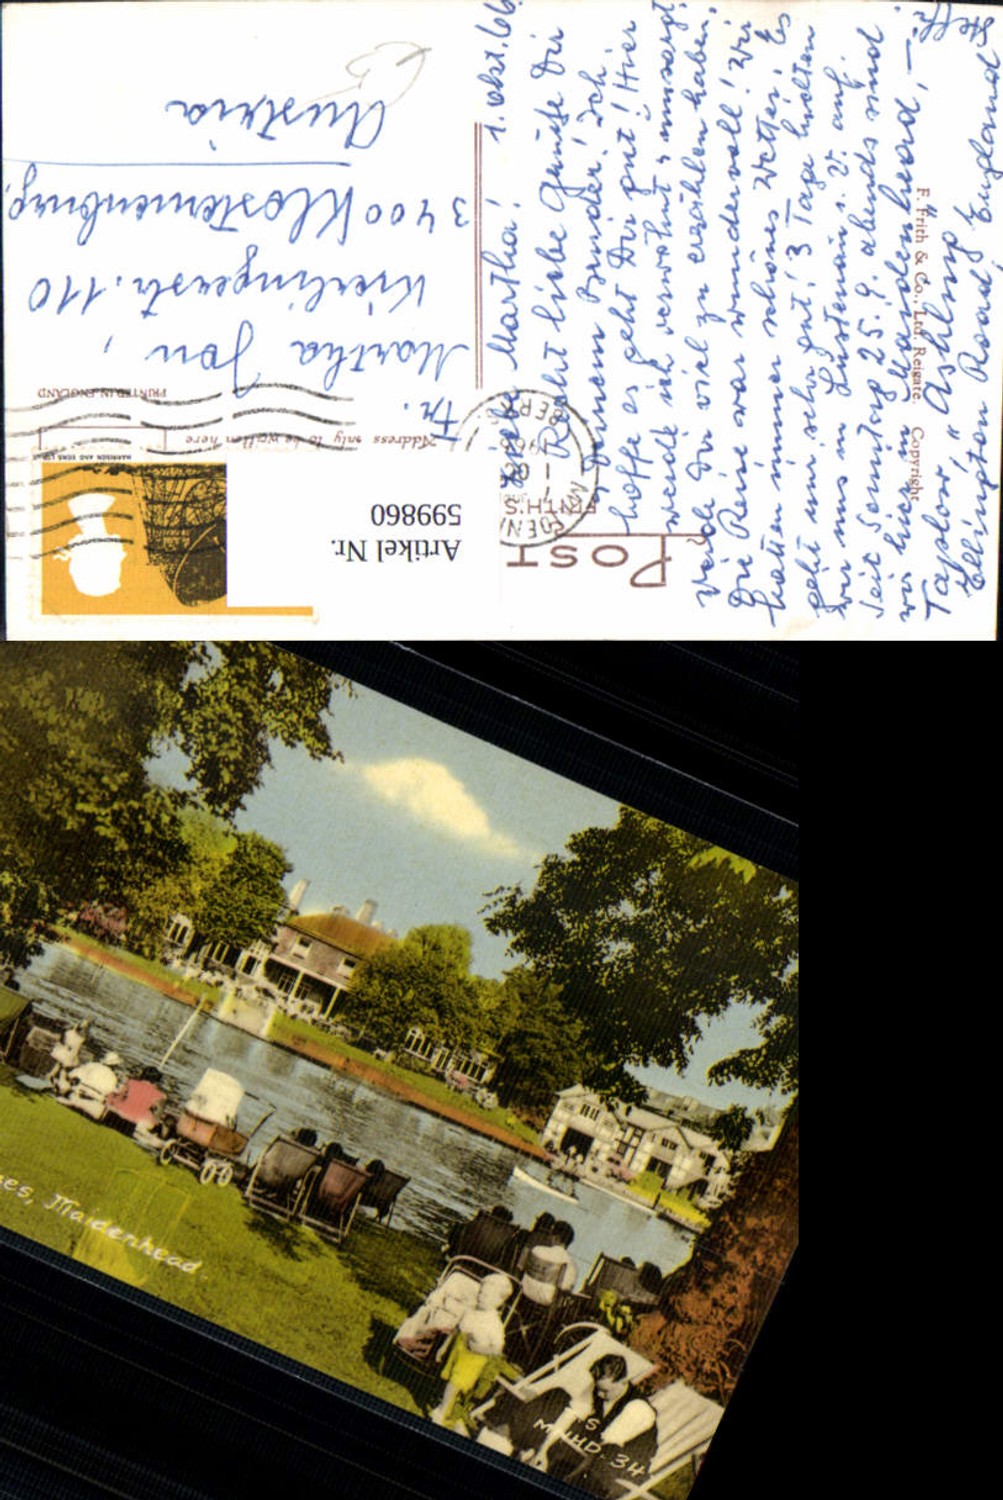 POST
FRITH'S
Address only to be written here
PRINTED IN ENGLAND
F. Frith & Co., Ltd. Reigate. Copyright
HARRISON AND SONS LTD
Artikel Nr.
599860
Fr.
Martha Jon,
Kierlingerstr. 110
3400 Klosterneuburg,
Austria
1. Okt. 66
Liebe Martha!
Recht liebe Grüße Dir
u. Deinem Bruder! Ich
hoffe es geht Dir gut! Hier
werde ich verwöhnt u. umsorgt
werde Dir viel zu erzählen haben.
Die Reise war wundervoll! Wir
hatten immer schönes Wetter, Es
geht mir sehr gut! 3 Tage hielten
wir uns in Luxemburg auf.
Seit Sonntag 25. 9. abends sind
wir hier in Maidenhead, —
Taplow, "Ashling"
Ellington Road, England
Steffi
es, Maidenhead.
MNHD. 34